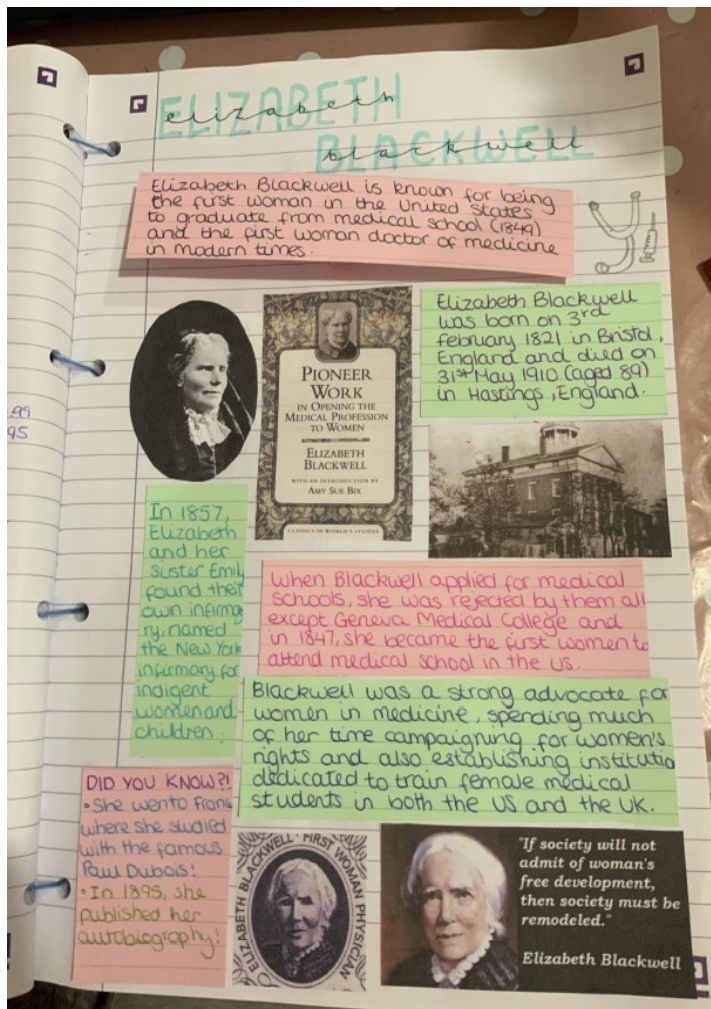 ELIZABETH
elizabeth
BLACKWELL
blackwell
Elizabeth Blackwell is known for being
the first woman in the United States
to graduate from medical school (1849)
and the first woman doctor of medicine
in modern times.
Elizabeth Blackwell
was born on 3rd
february 1821 in Bristol,
England and died on
31st May 1910 (aged 89)
in Hastings, England.
PIONEER
WORK
IN OPENING THE
MEDICAL PROFESSION
TO WOMEN
ELIZABETH
BLACKWELL
WITH AN INTRODUCTION BY
AMY SUE BIX
CLASSICS IN WOMEN'S STUDIES
.99
95
In 1857,
Elizabeth
and her
sister Emily
found their
own infirma
ry, named
the New York
infirmary for
indigent
women and
children.
When Blackwell applied for medical
schools, she was rejected by them all
except Geneva Medical College and
in 1847, she became the first women to
attend medical school in the US.
Blackwell was a strong advocate for
women in medicine, spending much
of her time campaigning for women's
rights and also establishing institutio
dedicated to train female medical
students in both the US and the UK.
DID YOU KNOW?!
• She went to Franc
where she studied
with the famous
Paul Dubois!
• In 1895, she
published her
autobiography!
ELIZABETH BLACKWELL · FIRST WOMAN PHYSICIAN
"If society will not
admit of woman's
free development,
then society must be
remodeled."
Elizabeth Blackwell